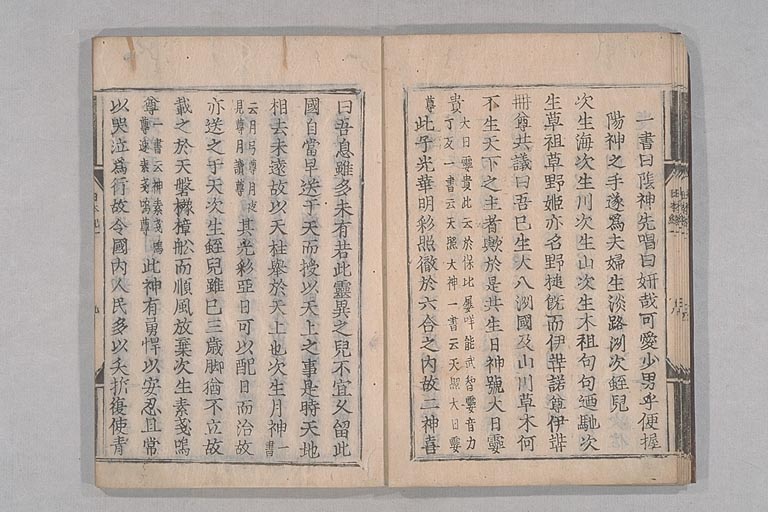 一書曰陰神先唱曰妍哉可愛少男乎便握
陽神之手遂爲夫婦生淡路洲次蛭兒
次生海次生川次生山次生木祖句句廼馳次
生草祖草野姬亦名野槌旣而伊弉諾尊伊弉
冊尊共議曰吾已生大八洲國及山川草木何
不生天下之主者歟於是共生日神號大日孁
貴大日孁貴此云於保比屢咩能武智孁音力
丁反一書云天照大神一書云天照大日孁
尊此子光華明彩照徹於六合之內故二神喜
曰吾息雖多未有若此靈異之兒不宜久留此
國自當早送于天而授以天上之事是時天地
相去未遠故以天柱舉於天上也次生月神一書
云月弓尊月夜
見尊月讀尊其光彩亞日可以配日而治故
亦送之于天次生蛭兒雖已三歲脚猶不立故
載之於天磐櫲樟舩而順風放棄次生素戔嗚
尊一書云神素戔嗚
尊速素戔嗚尊此神有勇悍以安忍且常
以哭泣爲行故令國內人民多以夭折復使青